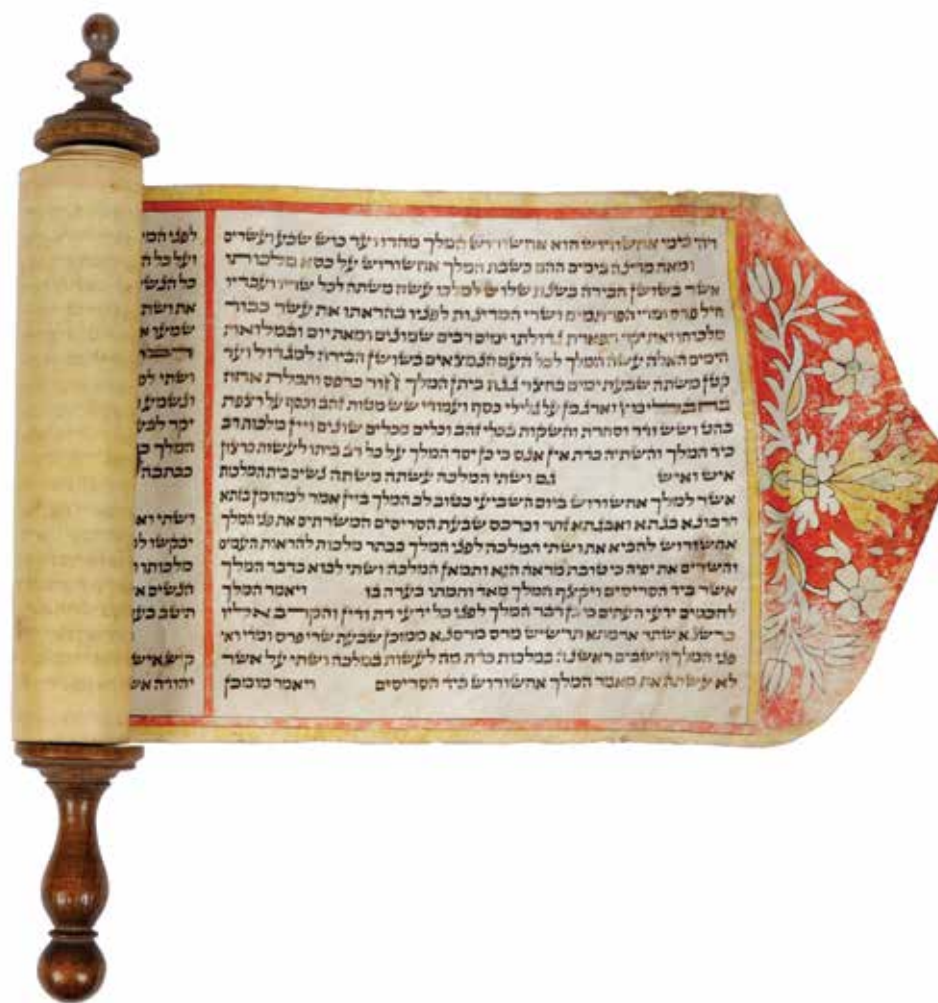 ויהי בימי אחשורוש הוא אחשורוש המלך מהדו ועד כוש שבע ועשרים
ומאה מדינה בימים ההם כשבת המלך אחשורוש על כסא מלכותו
אשר בשושן הבירה בשנת שלוש למלכו עשה משתה לכל שריו ועבדיו
חיל פרס ומדי הפרתמים ושרי המדינות לפניו בהראתו את עשר כבוד
מלכותו ואת יקר תפארת גדולתו ימים רבים שמונים ומאת יום ובמלואת
הימים האלה עשה המלך לכל העם הנמצאים בשושן הבירה למגדול ועד
קטן משתה שבעת ימים בחצר גנת ביתן המלך חור כרפס ותכלת אחוז
בחבלי בוץ וארגמן על גלילי כסף ועמודי שש מטות זהב וכסף על רצפת
בהט ושש ודר וסחרת והשקות בכלי זהב וכלים מכלים שונים ויין מלכות רב
כיד המלך והשתיה כדת אין אנס כי כן יסד המלך על כל רב ביתו לעשות כרצון
איש ואיש גם ושתי המלכה עשתה משתה נשים בית המלכות
אשר למלך אחשורוש ביום השביעי כטוב לב המלך ביין אמר למהומן בזתא
חרבונא בגתא ואבגתא זתר וכרכס שבעת הסריסים המשרתים את פני המלך
אחשורוש להביא את ושתי המלכה לפני המלך בכתר מלכות להראות העמים
והשרים את יפיה כי טובת מראה היא ותמאן המלכה ושתי לבוא בדבר המלך
אשר ביד הסריסים ויקצף המלך מאד וחמתו בערה בו ויאמר המלך
לחכמים ידעי העתים כי כן דבר המלך לפני כל ידעי דת ודין והקרב אליו
כרשנא שתר אדמתא תרשיש מרס מרסנא ממוכן שבעת שרי פרס ומדי ראי
פני המלך הישבים ראשנה במלכות כדת מה לעשות במלכה ושתי על אשר
לא עשתה את מאמר המלך אחשורוש ביד הסריסים ויאמר מומכן
לפני המל
ועל כל ה
כל הנשי
את ושת
שמעו א
ושתי לפ
ונשמע
יקר לבע
המלך כ
ככתבה
ושתי וא
יבקשו ל
מלכותו
הנשים א
תישב בע
קיש איש
יהודה אש